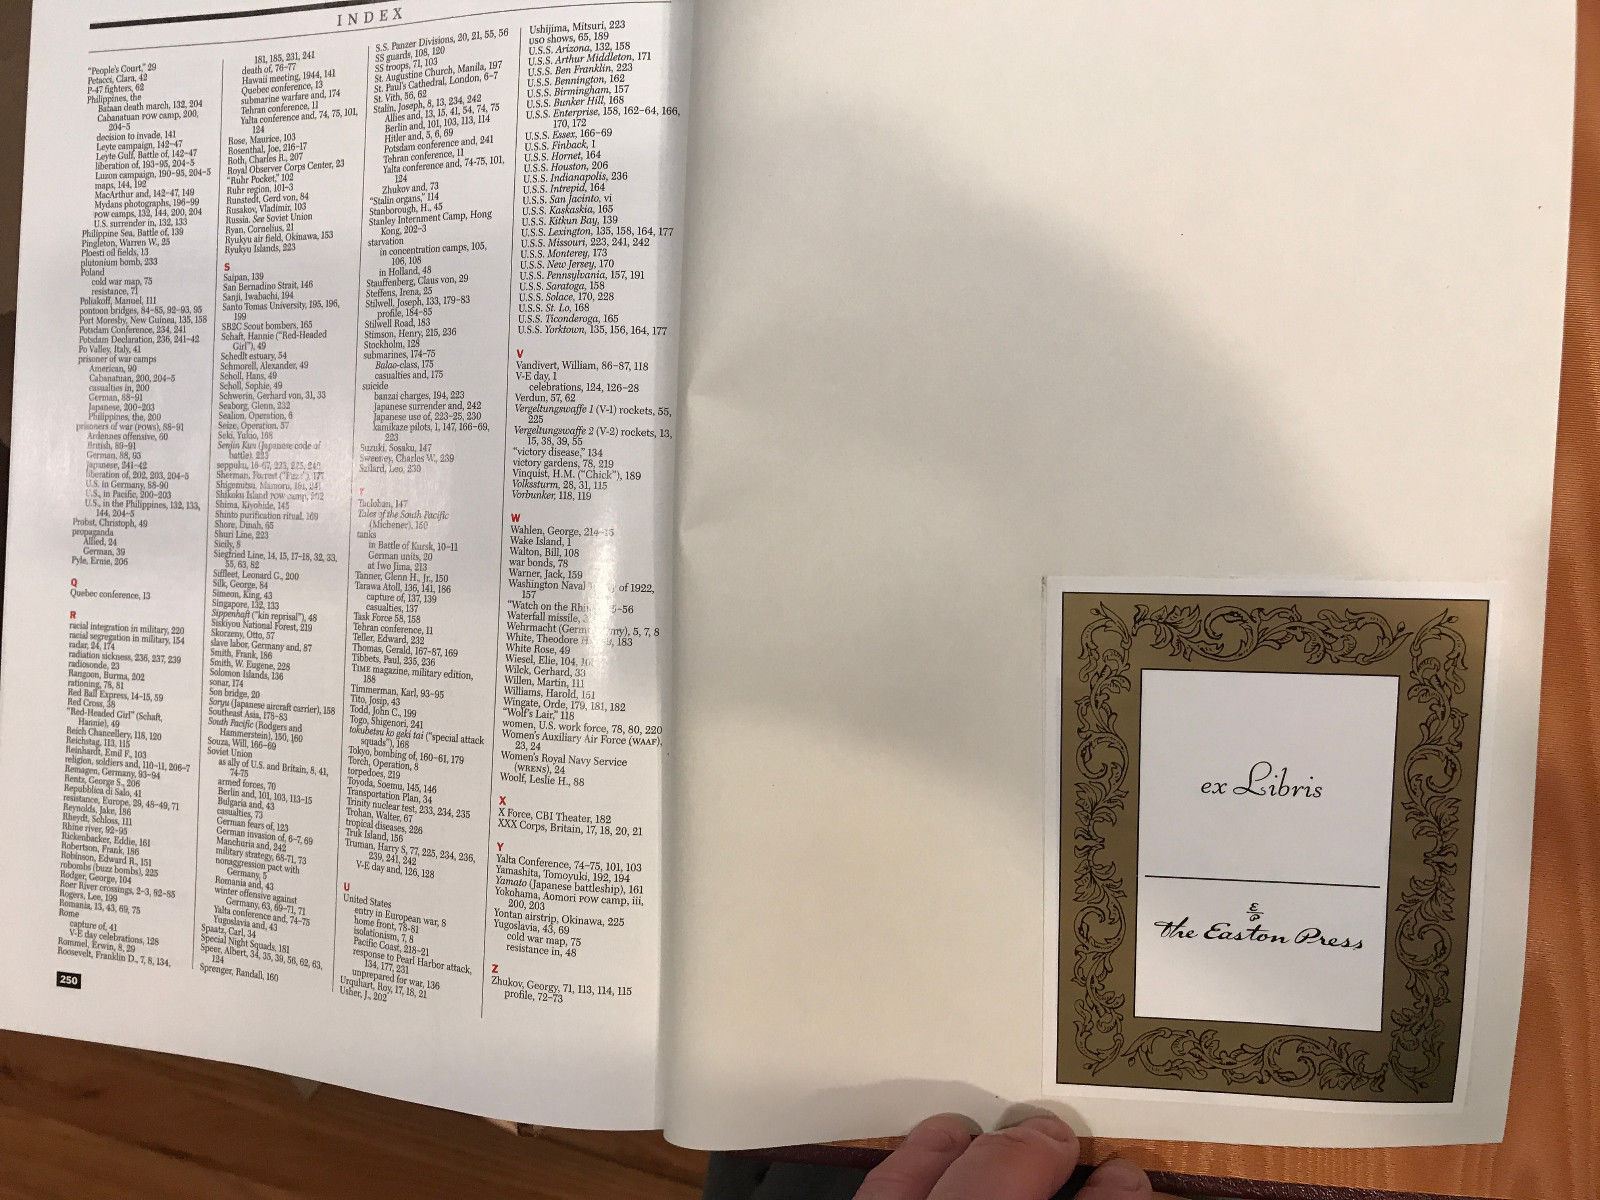 INDEX
"People's Court," 29
Petacci, Clara, 42
P-47 fighters, 62
Philippines, the
Bataan death march, 132, 204
Cabanatuan POW camp, 200,
204-5
decision to invade, 141
Leyte campaign, 142-47
Leyte Gulf, Battle of, 142-47
liberation of, 193-95, 204-5
Luzon campaign, 190-95, 204-5
maps, 144, 192
MacArthur and, 142-47, 149
Mydans photographs, 196-99
POW camps, 132, 144, 200, 204
U.S. surrender in, 132, 133
Philippine Sea, Battle of, 139
Pingleton, Warren W., 25
Ploesti oil fields, 13
plutonium bomb, 233
Poland
cold war map, 75
resistance, 71
Poliakoff, Manuel, 111
pontoon bridges, 84-85, 92-93, 95
Port Moresby, New Guinea, 135, 158
Potsdam Conference, 234, 241
Potsdam Declaration, 236, 241-42
Po Valley, Italy, 41
prisoner of war camps
American, 90
Cabanatuan, 200, 204-5
casualties in, 200
German, 88-91
Japanese, 200-203
Philippines, the, 200
prisoners of war (POWs), 88-91
Ardennes offensive, 60
British, 89-91
German, 88, 93
Japanese, 241-42
liberation of, 202, 203, 204-5
U.S. in Germany, 88-90
U.S., in Pacific, 200-203
U.S., in the Philippines, 132, 133,
144, 204-5
Probst, Christoph, 49
propaganda
Allied, 24
German, 39
Pyle, Ernie, 206
Q
Quebec conference, 13
R
racial integration in military, 220
racial segregation in military, 154
radar, 24, 174
radiation sickness, 236, 237, 239
radiosonde, 23
Rangoon, Burma, 202
rationing, 78, 81
Red Ball Express, 14-15, 59
Red Cross, 38
"Red-Headed Girl" (Schaft,
Hannie), 49
Reich Chancellery, 118, 120
Reichstag, 113, 115
Reinhardt, Emil F., 103
religion, soldiers and, 110-11, 206-7
Remagen, Germany, 93-94
Rentz, George S., 206
Repubblica di Salo, 41
resistance, Europe, 29, 48-49, 71
Reynolds, Jake, 186
Rheydt, Schloss, 111
Rhine river, 92-95
Rickenbacker, Eddie, 161
Robertson, Frank, 186
Robinson, Edward R., 151
robombs (buzz bombs), 225
Rodger, George, 104
Roer River crossings, 2-3, 82-85
Rogers, Lee, 199
Romania, 13, 43, 69, 75
Rome
capture of, 41
V-E day celebrations, 128
Rommel, Erwin, 8, 29
Roosevelt, Franklin D., 7, 8, 134,
250
181, 185, 231, 241
death of, 76-77
Hawaii meeting, 1944, 141
Quebec conference, 13
submarine warfare and, 174
Tehran conference, 11
Yalta conference and, 74, 75, 101,
124
Rose, Maurice, 103
Rosenthal, Joe, 216-17
Roth, Charles R., 207
Royal Observer Corps Center, 23
"Ruhr Pocket," 102
Ruhr region, 101-3
Runstedt, Gerd von, 84
Rusakov, Vladimir, 103
Russia. See Soviet Union
Ryan, Cornelius, 21
Ryukyu air field, Okinawa, 153
Ryukyu Islands, 223
S
Saipan, 139
San Bernadino Strait, 146
Sanji, Iwabachi, 194
Santo Tomas University, 195, 196,
199
SB2C Scout bombers, 165
Schaft, Hannie ("Red-Headed
Girl"), 49
Schedlt estuary, 54
Schmorell, Alexander, 49
Scholl, Hans, 49
Scholl, Sophie, 49
Schwerin, Gerhard von, 31, 33
Seaborg, Glenn, 232
Sealion, Operation, 6
Seize, Operation, 57
Seki, Yukio, 168
Senjin Kun (Japanese code of
battle), 223
seppuku, 16-67, 223, 225, 242
Sherman, Forrest ("Fuzz"), 177
Shigemitsu, Mamoru, 161, 241
Shikoku Island POW camp, 202
Shima, Kiyohide, 145
Shinto purification ritual, 169
Shore, Dinah, 65
Shuri Line, 223
Sicily, 8
Siegfried Line, 14, 15, 17-18, 32, 33,
55, 63, 82
Siffleet, Leonard G., 200
Silk, George, 84
Simeon, King, 43
Singapore, 132, 133
Sippenhaft ("kin reprisal"), 48
Siskiyou National Forest, 219
Skorzeny, Otto, 57
slave labor, Germany and, 87
Smith, Frank, 186
Smith, W. Eugene, 228
Solomon Islands, 136
sonar, 174
Son bridge, 20
Soryu (Japanese aircraft carrier), 158
Southeast Asia, 178-83
South Pacific (Rodgers and
Hammerstein), 150, 160
Souza, Will, 166-69
Soviet Union
as ally of U.S. and Britain, 8, 41,
74-75
armed forces, 70
Berlin and, 101, 103, 113-15
Bulgaria and, 43
casualties, 73
German fears of, 123
German invasion of, 6-7, 69
Manchuria and, 242
military strategy, 68-71, 73
nonaggression pact with
Germany, 5
Romania and, 43
winter offensive against
Germany, 63, 69-71, 71
Yalta conference and, 74-75
Yugoslavia and, 43
Spaatz, Carl, 34
Special Night Squads, 181
Speer, Albert, 34, 35, 39, 56, 62, 63,
124
Sprenger, Randall, 160
S.S. Panzer Divisions, 20, 21, 55, 56
SS guards, 108, 120
SS troops, 71, 103
St. Augustine Church, Manila, 197
St. Paul's Cathedral, London, 6-7
St. Vith, 56, 62
Stalin, Joseph, 8, 13, 234, 242
Allies and, 13, 15, 41, 54, 74, 75
Berlin and, 101, 103, 113, 114
Hitler and, 5, 6, 69
Potsdam conference and, 241
Tehran conference, 11
Yalta conference and, 74-75, 101,
124
Zhukov and, 73
"Stalin organs," 114
Stanborough, H., 45
Stanley Internment Camp, Hong
Kong, 202-3
starvation
in concentration camps, 105,
106, 108
in Holland, 48
Stauffenberg, Claus von, 29
Steffens, Irena, 25
Stilwell, Joseph, 133, 179-83
profile, 184-85
Stilwell Road, 183
Stimson, Henry, 215, 236
Stockholm, 128
submarines, 174-75
Balao-class, 175
casualties and, 175
suicide
banzai charges, 194, 223
Japanese surrender and, 242
Japanese use of, 223-25, 230
kamikaze pilots, 1, 147, 166-69,
223
Suzuki, Sosaku, 147
Sweeney, Charles W., 239
Szilard, Leo, 230
T
Tacloban, 147
Tales of the South Pacific
(Michener), 160
tanks
in Battle of Kursk, 10-11
German units, 20
at Iwo Jima, 213
Tanner, Glenn H., Jr., 150
Tarawa Atoll, 136, 141, 186
capture of, 137, 139
casualties, 137
Task Force 58, 158
Tehran conference, 11
Teller, Edward, 232
Thomas, Gerald, 167-87, 169
Tibbets, Paul, 235, 236
TIME magazine, military edition,
188
Timmerman, Karl, 93-95
Tito, Josip, 43
Todd, John C., 199
Togo, Shigenori, 241
tokubetsu ko geki tai ("special attack
squads"), 168
Tokyo, bombing of, 160-61, 179
Torch, Operation, 8
torpedoes, 219
Toyoda, Soemu, 145, 146
Transportation Plan, 34
Trinity nuclear test, 233, 234, 235
Trohan, Walter, 67
tropical diseases, 226
Truk Island, 156
Truman, Harry S, 77, 225, 234, 236,
239, 241, 242
V-E day and, 126, 128
U
United States
entry in European war, 8
home front, 78-81
isolationism, 7, 8
Pacific Coast, 218-21
response to Pearl Harbor attack,
134, 177, 231
unprepared for war, 136
Urquhart, Roy, 17, 18, 21
Usher, J., 202
Ushijima, Mitsuri, 223
USO shows, 65, 189
U.S.S. Arizona, 132, 158
U.S.S. Arthur Middleton, 171
U.S.S. Ben Franklin, 223
U.S.S. Bennington, 162
U.S.S. Birmingham, 157
U.S.S. Bunker Hill, 168
U.S.S. Enterprise, 158, 162-64, 166,
170, 172
U.S.S. Essex, 166-69
U.S.S. Finback, 1
U.S.S. Hornet, 164
U.S.S. Houston, 206
U.S.S. Indianapolis, 236
U.S.S. Intrepid, 164
U.S.S. San Jacinto, vi
U.S.S. Kaskaskia, 165
U.S.S. Kitkun Bay, 139
U.S.S. Lexington, 135, 158, 164, 177
U.S.S. Missouri, 223, 241, 242
U.S.S. Monterey, 173
U.S.S. New Jersey, 170
U.S.S. Pennsylvania, 157, 191
U.S.S. Saratoga, 158
U.S.S. Solace, 170, 228
U.S.S. St. Lo, 168
U.S.S. Ticonderoga, 165
U.S.S. Yorktown, 135, 156, 164, 177
V
Vandivert, William, 86-87, 118
V-E day, 1
celebrations, 124, 126-28
Verdun, 57, 62
Vergeltungswaffe 1 (V-1) rockets, 55,
225
Vergeltungswaffe 2 (V-2) rockets, 13,
15, 38, 39, 55
"victory disease," 134
victory gardens, 78, 219
Vinquist, H.M. ("Chick"), 189
Volkssturm, 28, 31, 115
Vorbunker, 118, 119
W
Wahlen, George, 214-15
Wake Island, 1
Walton, Bill, 108
war bonds, 78
Warner, Jack, 159
Washington Naval of 1922,
157
"Watch on the 5-56
Waterfall missile,
Wehrmacht 5, 7, 8
White, Theodore 183
White Rose, 49
Wiesel, Elie, 104,
Wilck, Gerhard, 33
Willen, Martin, 111
Williams, Harold, 151
Wingate, Orde, 179, 181, 182
"Wolf's Lair," 118
women, U.S. work force, 78, 80, 220
Women's Auxiliary Air Force (WAAF),
23, 24
Women's Royal Navy Service
(WRENS), 24
Woolf, Leslie H., 88
X
X Force, CBI Theater, 182
XXX Corps, Britain, 17, 18, 20, 21
Y
Yalta Conference, 74-75, 101, 103
Yamashita, Tomoyuki, 192, 194
Yamato (Japanese battleship), 161
Yokohama, Aomori POW camp, iii,
200, 203
Yontan airstrip, Okinawa, 225
Yugoslavia, 43, 69
cold war map, 75
resistance in, 48
Z
Zhukov, Georgy, 71, 113, 114, 115
profile, 72-73
ex Libris
the Easton Press